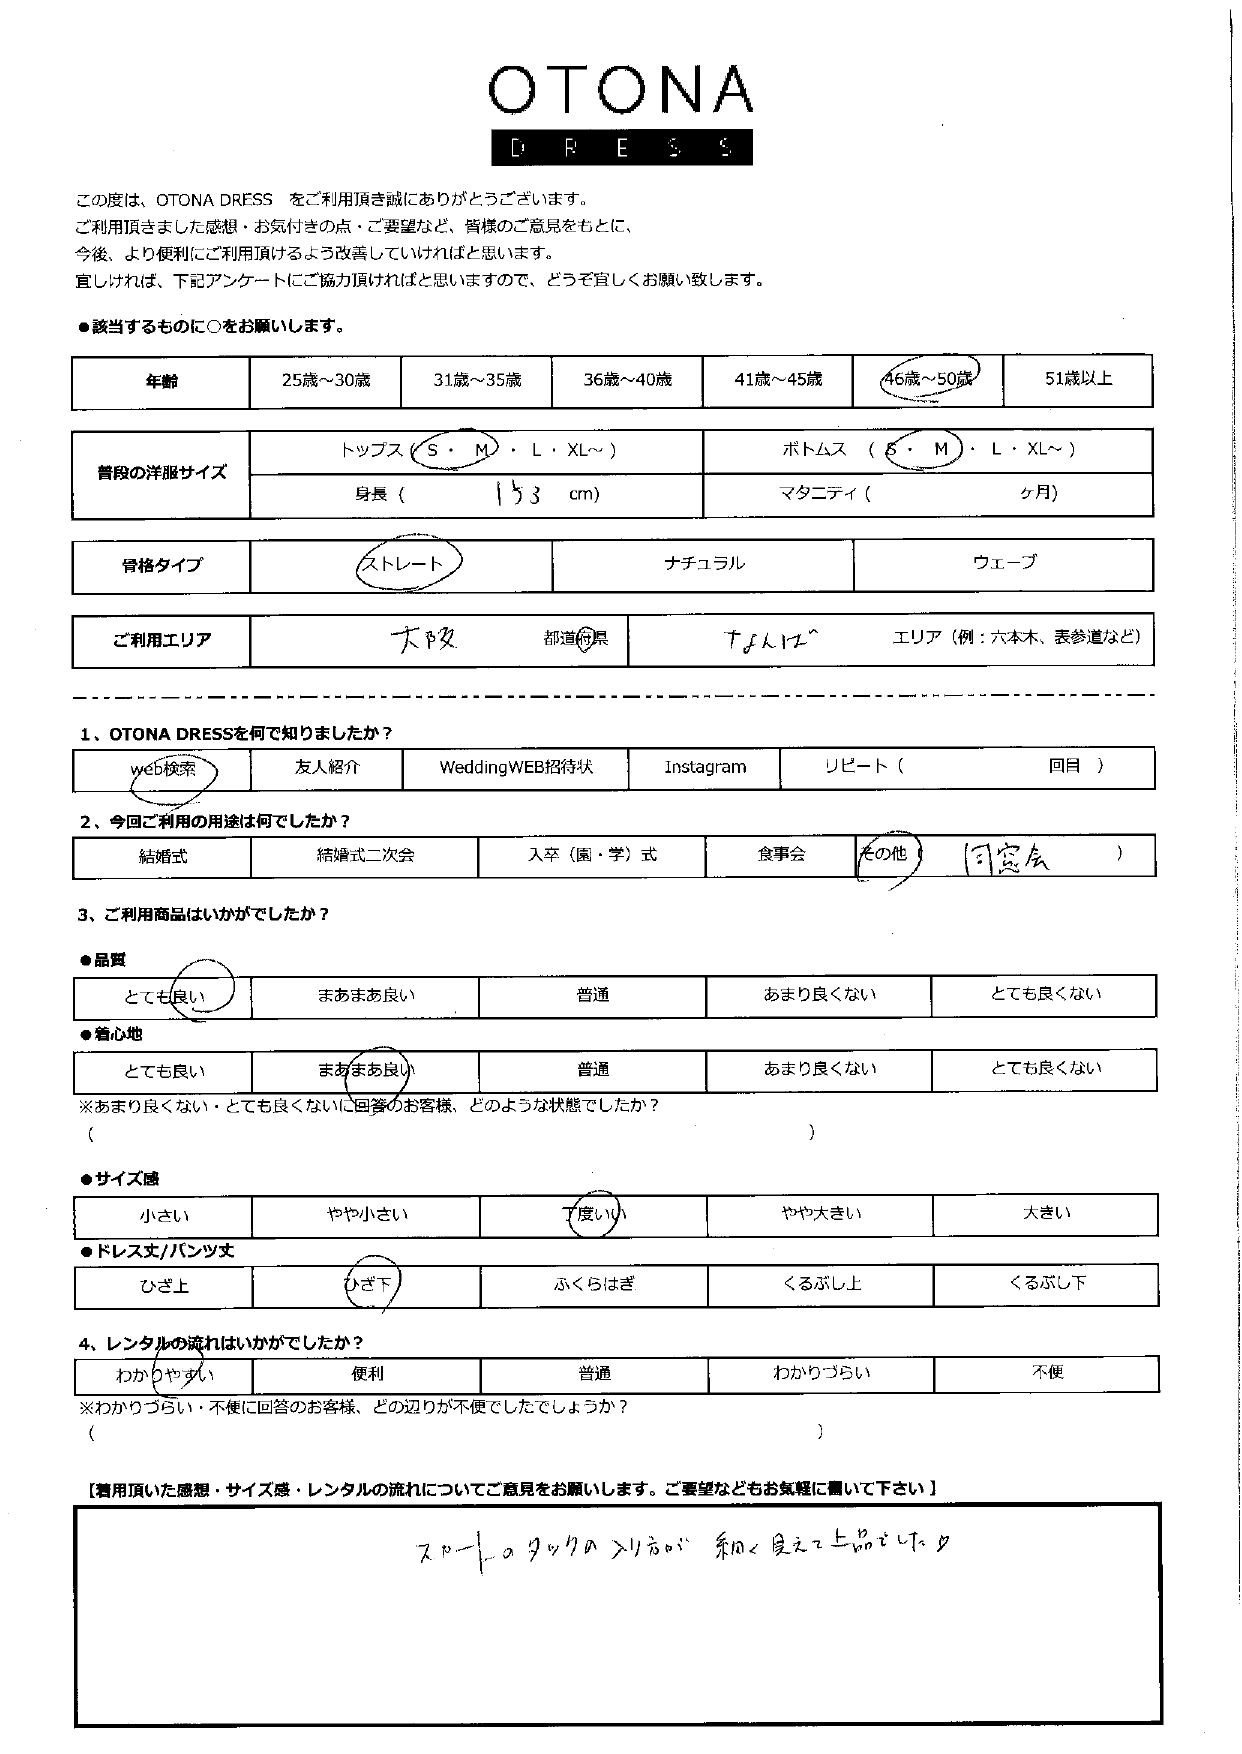 OTONA
DRESS
この度は、OTONA DRESS　をご利用頂き誠にありがとうございます。
ご利用頂きました感想・お気付きの点・ご要望など、皆様のご意見をもとに、
今後、より便利にご利用頂けるよう改善していければと思います。
宜しければ、下記アンケートにご協力頂ければと思いますので、どうぞ宜しくお願い致します。
●該当するものに○をお願いします。
年齢 25歳～30歳 31歳～35歳 36歳～40歳 41歳～45歳 46歳～50歳 51歳以上
普段の洋服サイズ トップス ( S ・ M ・ L ・ XL～ ) ボトムス ( S ・ M ・ L ・ XL～ )
身長 ( 153 cm) マタニティ ( ヶ月)
骨格タイプ ストレート ナチュラル ウェーブ
ご利用エリア 大阪 都道府県 なんば エリア（例：六本木、表参道など）
1、OTONA DRESSを何で知りましたか？
web検索 友人紹介 WeddingWEB招待状 Instagram リピート ( 回目 )
2、今回ご利用の用途は何でしたか？
結婚式 結婚式二次会 入卒（園・学）式 食事会 その他 ( 同窓会 )
3、ご利用商品はいかがでしたか？
●品質
とても良い まあまあ良い 普通 あまり良くない とても良くない
●着心地
とても良い まあまあ良い 普通 あまり良くない とても良くない
※あまり良くない・とても良くないに回答のお客様、どのような状態でしたか？
( )
●サイズ感
小さい やや小さい 丁度いい やや大きい 大きい
●ドレス丈/パンツ丈
ひざ上 ひざ下 ふくらはぎ くるぶし上 くるぶし下
4、レンタルの流れはいかがでしたか？
わかりやすい 便利 普通 わかりづらい 不便
※わかりづらい・不便に回答のお客様、どの辺りが不便でしたでしょうか？
( )
【着用頂いた感想・サイズ感・レンタルの流れについてご意見をお願いします。ご要望などもお気軽に書いて下さい】
スカートのタックの入り方が 細く見えて上品でした♡